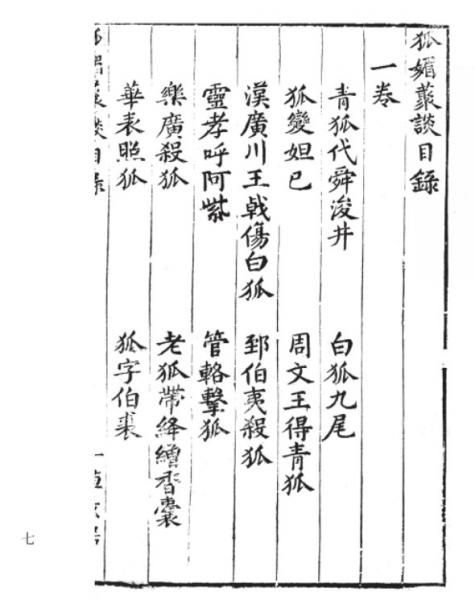 狐媚叢談目錄
一卷
青狐代舜浚井
白狐九尾
狐變妲己
周文王得青狐
漢廣川王戟傷白狐
郅伯夷殺狐
靈孝呼阿紫
管輅擊狐
樂廣殺狐
老狐帶絳繒香囊
華表照狐
狐字伯裘
七